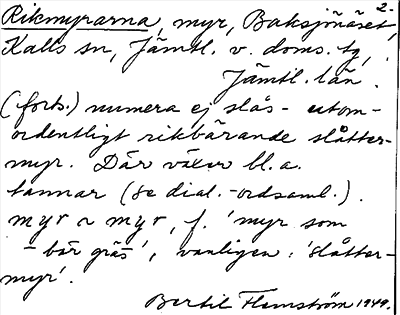 2.
Rikmyrarna, myr, Baksjönäset,
Kalls sn, Jämtl. v. doms. tg,
Jämtl. län.
(forts.) numera ej slås - utom-
ordentligt rikbärande slåtter-
myr. Där växer bl.a.
tannar (se dial.-ordsaml.).
myr ~ myr, f. 'myr som
- bär gräs', vanligen: 'slåtter-
myr'.
Bertil Flemström 1949.